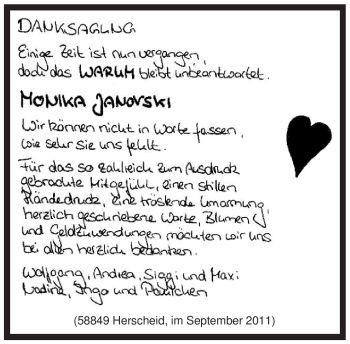 DANKSAGUNG
Einige Zeit ist nun vergangen,
doch das WARUM bleibt unbeantwortet.
MONIKA JANOVSKI
Wir können nicht in Worte fassen,
wie sehr Sie uns fehlt.
Für das so zahlreich zum Ausdruck
gebrachte Mitgefühl, einen stillen
Händedruck, eine tröstende Umarmung,
herzlich geschriebene Worte, Blumen
und Geldzuwendungen möchten wir uns
bei allen herzlich bedanken.
Wolfgang, Andrea, Siggi und Maxi
Nadine, Ingo und Paulchen
(58849 Herscheid, im September 2011)